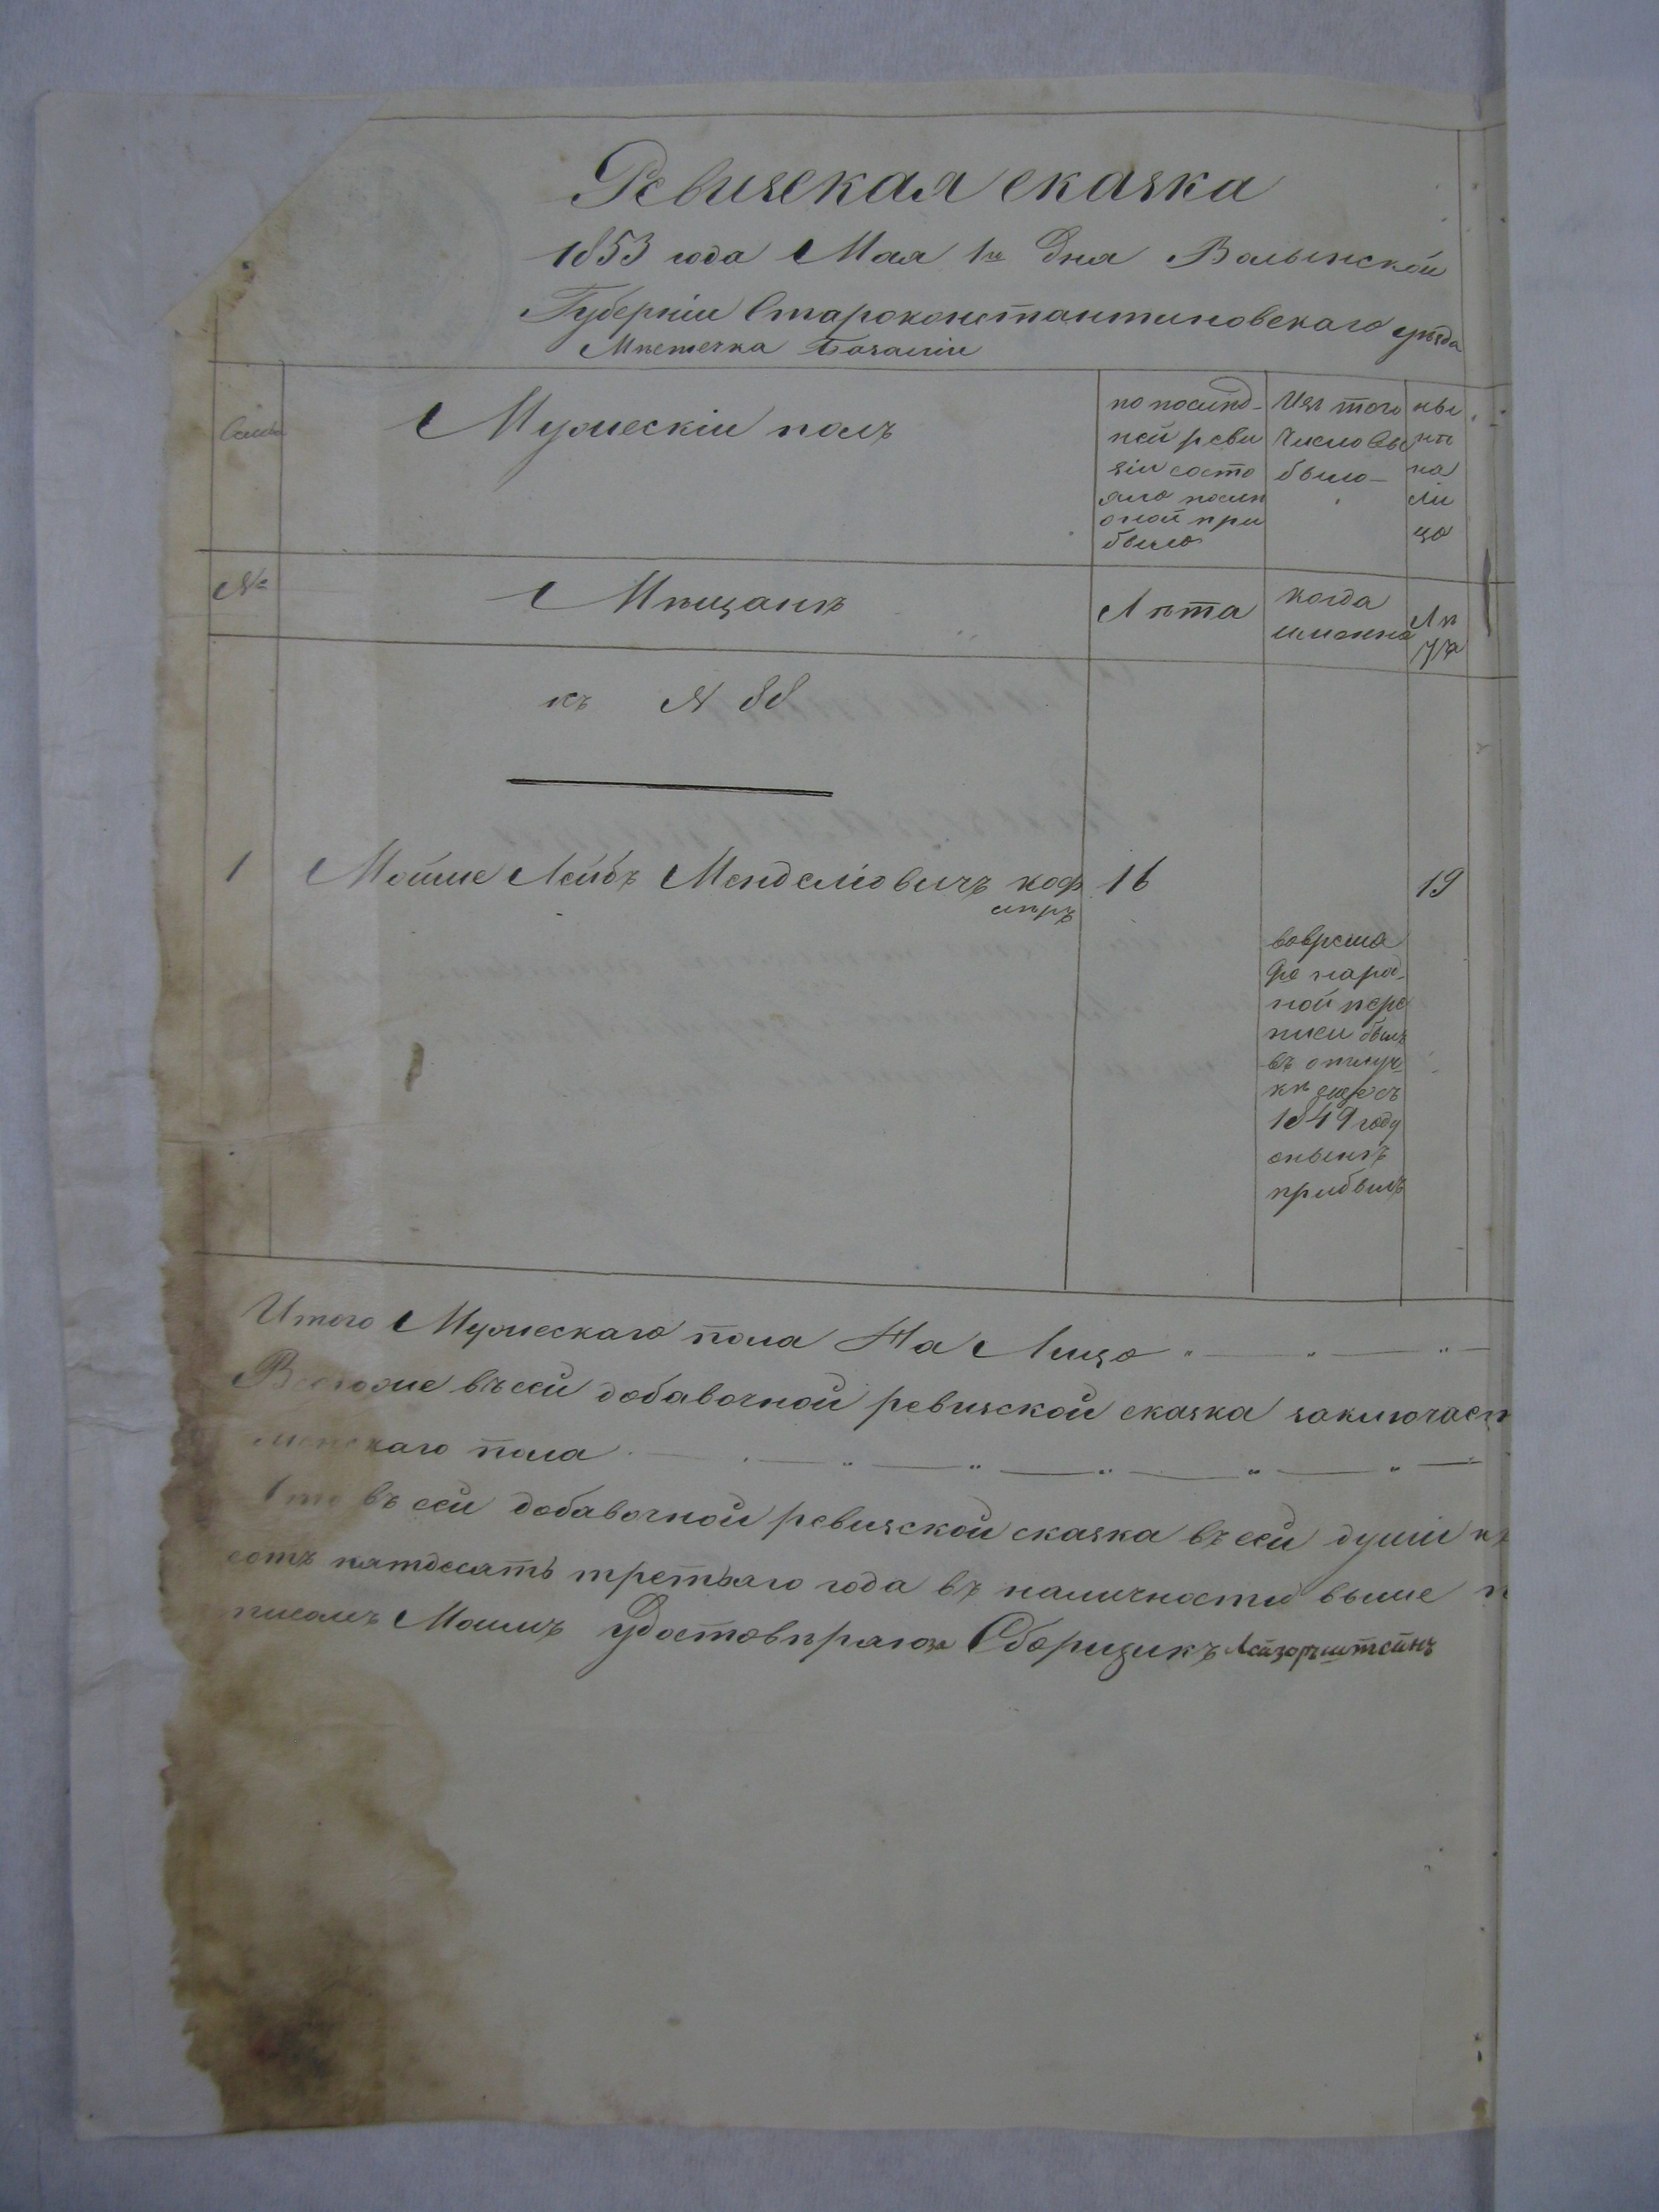 Ревизская сказка
1853 года Мая 1го Дня Волынской
Губерніи Староконстантиновскаго уѣзда
Мѣстечка Базаліи
Мужескій полъ
по послѣд-
ней реви
зіи состо
яло послѣ
оной при
было
Изъ того
число Вы
было
ны
нѣ
на
ли
цо
№
Мѣщанѣ
Лѣта
когда
именно
Лѣ
та
къ № 88
1 Мошие Лейбъ Менделіовичъ коф 16 19
вовремя
народ-
ной пере
писи былъ
въ отлуч
кѣ
1849 году
прибылъ
Итого Мужескаго пола На Лицо
Всегоже въсей добавочной ревизской сказка заключает
женскаго пола
Что въ сей добавочной ревизской сказка въсей душіи
сотъ пятдесять третьяго года въ наличности выше
писанъ Мошиъ удостовѣраю Сборщикъ Лейзоръштейнъ